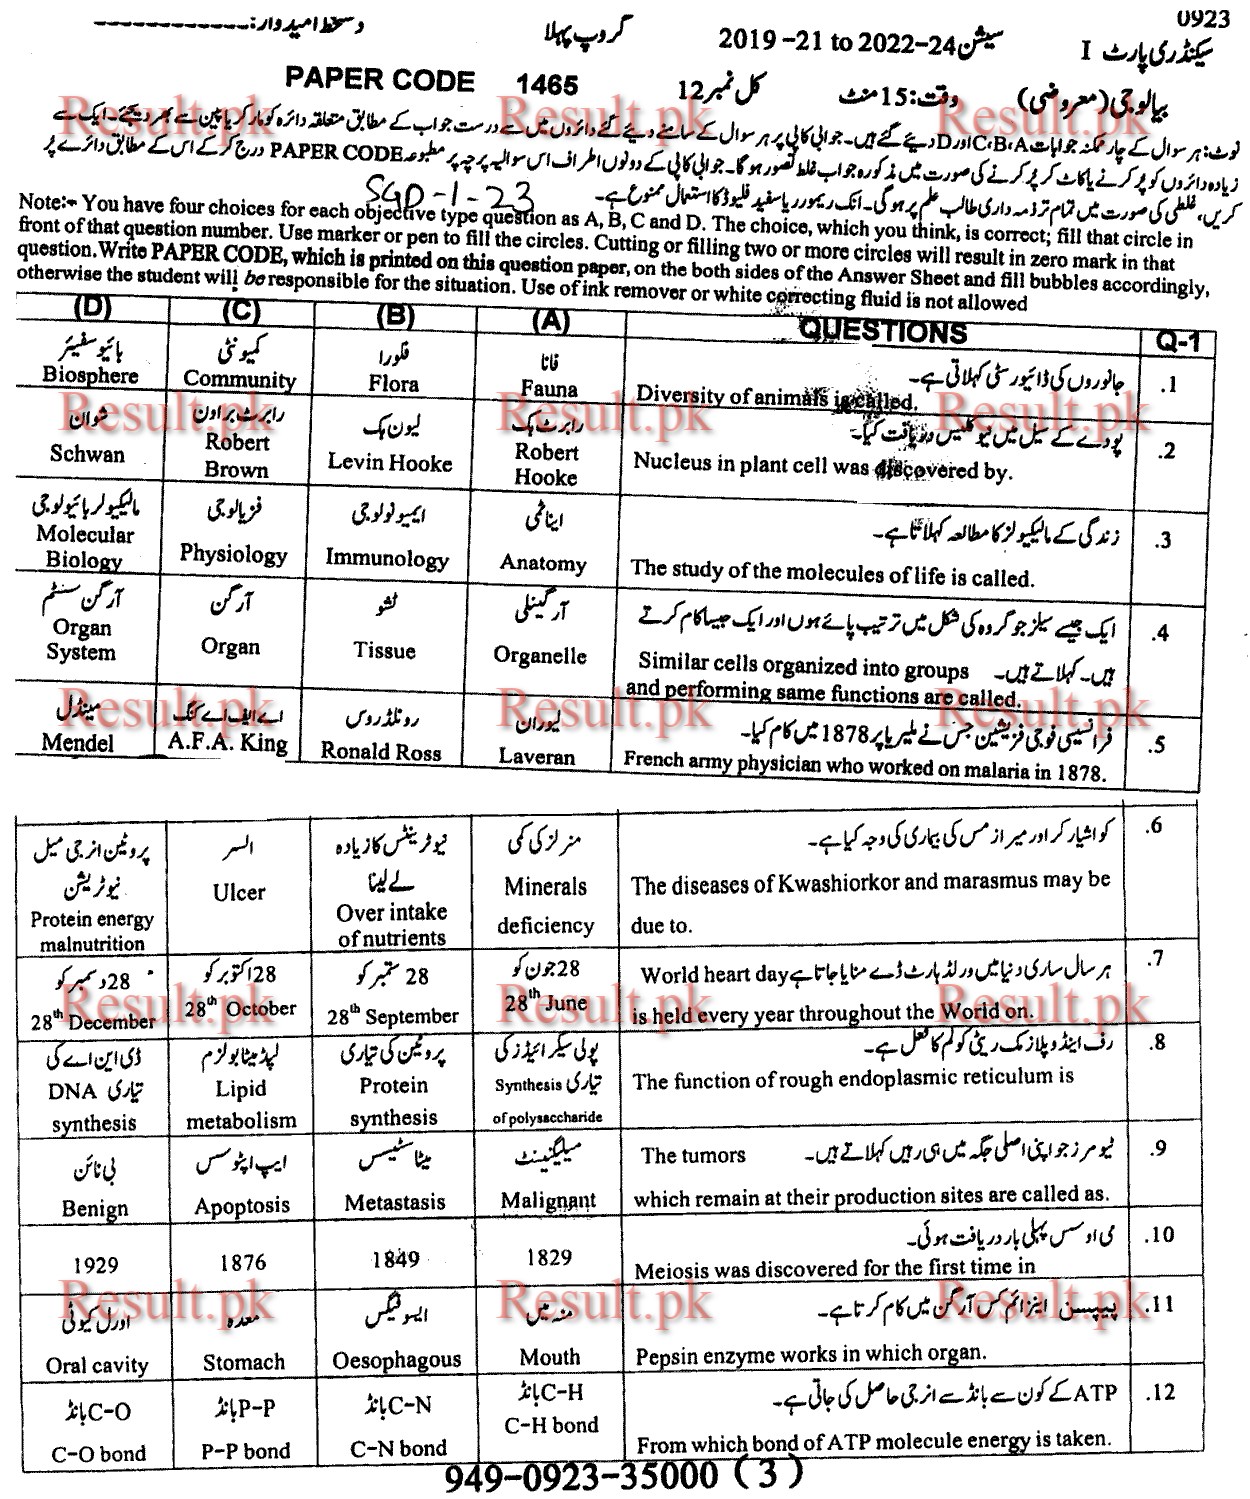 0923
سیکنڈری پارٹ I سیشن 2019 -21 to 2022-24 گروپ پہلا دستخط امیدوار:-------------
بیالوجی (معروضی) وقت: 15 منٹ کل نمبر 12 PAPER CODE 1465
نوٹ: ہر سوال کے چار ممکنہ جوابات C، B، A اور D دیئے گئے ہیں۔ جوابی کاپی پر ہر سوال کے سامنے دیئے گئے دائروں میں سے درست جواب کے مطابق متعلقہ دائرہ کو مارکر یا پین سے بھر دیجئے۔ ایک سے
زیادہ دائروں کو پُر کرنے یا کاٹ کر پُر کرنے کی صورت میں مذکورہ جواب غلط تصور ہوگا۔ جوابی کاپی کے دونوں اطراف اس سوالیہ پرچہ پر مطبوعہ PAPER CODE درج کرکے اس کے مطابق دائرے پُر
کریں، غلطی کی صورت میں تمام تر ذمہ داری طالب علم پر ہوگی۔ انک ریموور یا سفید فلیوڈ کا استعمال ممنوع ہے۔
SGD-1-23
Note:- You have four choices for each objective type question as A, B, C and D. The choice, which you think, is correct; fill that circle in
front of that question number. Use marker or pen to fill the circles. Cutting or filling two or more circles will result in zero mark in that
question. Write PAPER CODE, which is printed on this question paper, on the both sides of the Answer Sheet and fill bubbles accordingly,
otherwise the student will be responsible for the situation. Use of ink remover or white correcting fluid is not allowed
(D) (C) (B) (A) QUESTIONS Q-1
بائیوسفیئر کمیونٹی فلورا فانا جانوروں کی ڈائیورسٹی کہلاتی ہے۔ .1
Biosphere Community Flora Fauna Diversity of animals is called.
شوان رابرٹ براون لیون ہک رابرٹ ہک پودے کے سیل میں نیوکلئیس دریافت کیا۔ .2
Schwan Robert Brown Levin Hooke Robert Hooke Nucleus in plant cell was discovered by.
مالیکیولر بائیولوجی فزیالوجی ایمیونولوجی ایناٹمی زندگی کے مالیکیولز کا مطالعہ کہلاتا ہے۔ .3
Molecular Biology Physiology Immunology Anatomy The study of the molecules of life is called.
آرگن سسٹم آرگن ٹشو آرگینلی ایک جیسے سیلز جو گروہ کی شکل میں ترتیب پائے ہوں اور ایک جیسا کام کرتے .4
ہیں۔ کہلاتے ہیں۔ Similar cells organized into groups
Organ System Organ Tissue Organelle and performing same functions are called.
مینڈل اے ایف اے کنگ رونلڈ روس لیوران فرانسیسی فوجی فزیشین جس نے ملیریا پر 1878 میں کام کیا۔ .5
Mendel A.F.A. King Ronald Ross Laveran French army physician who worked on malaria in 1878.
پروٹین انرجی میل نیوٹریشن السر نیوٹرینٹس کا زیادہ لے لینا منرلز کی کمی کواشیارکر اور میرازمس کی بیماری کی وجہ کیا ہے۔ .6
Protein energy malnutrition Ulcer Over intake of nutrients Minerals deficiency The diseases of Kwashiorkor and marasmus may be
due to.
28 دسمبر کو 28 اکتوبر کو 28 ستمبر کو 28 جون کو ہر سال ساری دنیا میں ورلڈ ہارٹ ڈے منایا جاتا ہے World heart day .7
28th December 28th October 28th September 28th June is held every year throughout the World on.
ڈی این اے کی تیاری لپڈ میٹابولزم پروٹین کی تیاری پولی سیکرائیڈز کی تیاری رف اینڈوپلازمک ریٹی کولم کا فعل ہے۔ .8
DNA synthesis Lipid metabolism Protein synthesis Synthesis of polysaccharide The function of rough endoplasmic reticulum is
بی نائن ایپ اپٹوسس میٹا سٹیسس میلیگنینٹ ٹیومرز جو اپنی اصلی جگہ میں ہی رہیں کہلاتے ہیں۔ The tumors .9
Benign Apoptosis Metastasis Malignant which remain at their production sites are called as.
می اوسس پہلی بار دریافت ہوئی۔ .10
1929 1876 1849 1829 Meiosis was discovered for the first time in
اورل کیوٹی معدہ ایسوفیگس منہ میں پیپسن اینزائم کس آرگن میں کام کرتا ہے۔ .11
Oral cavity Stomach Oesophagous Mouth Pepsin enzyme works in which organ.
C-O بانڈ P-P بانڈ C-N بانڈ C-H بانڈ ATP کے کون سے بانڈ سے انرجی حاصل کی جاتی ہے۔ .12
C-O bond P-P bond C-N bond C-H bond From which bond of ATP molecule energy is taken.
949-0923-35000 (3)
Result.pk Result.pk Result.pk
Result.pk Result.pk Result.pk
Result.pk Result.pk Result.pk
Result.pk Result.pk Result.pk
Result.pk Result.pk Result.pk